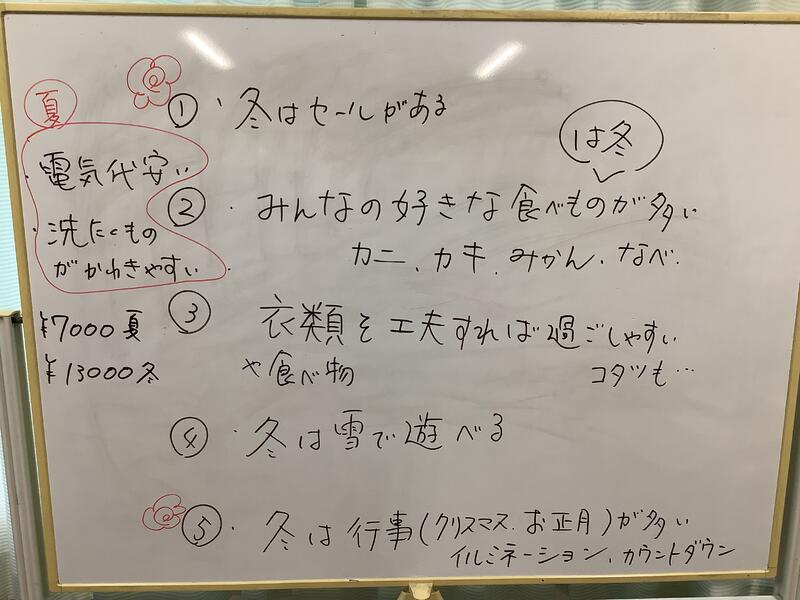 夏
電気代安い
・洗たくもの
がかわきやすい
¥7000夏
¥13000冬
①・冬はセールがある
は冬
②・みんなの好きな食べものが多い
カニ、カキ、みかん、なべ.
③・衣類を工夫すれば過ごしやすい
や食べ物 コタツも…
④・冬は雪で遊べる
⑤・冬は行事(クリスマス.お正月)が多い
イルミネーション、カウントダウン